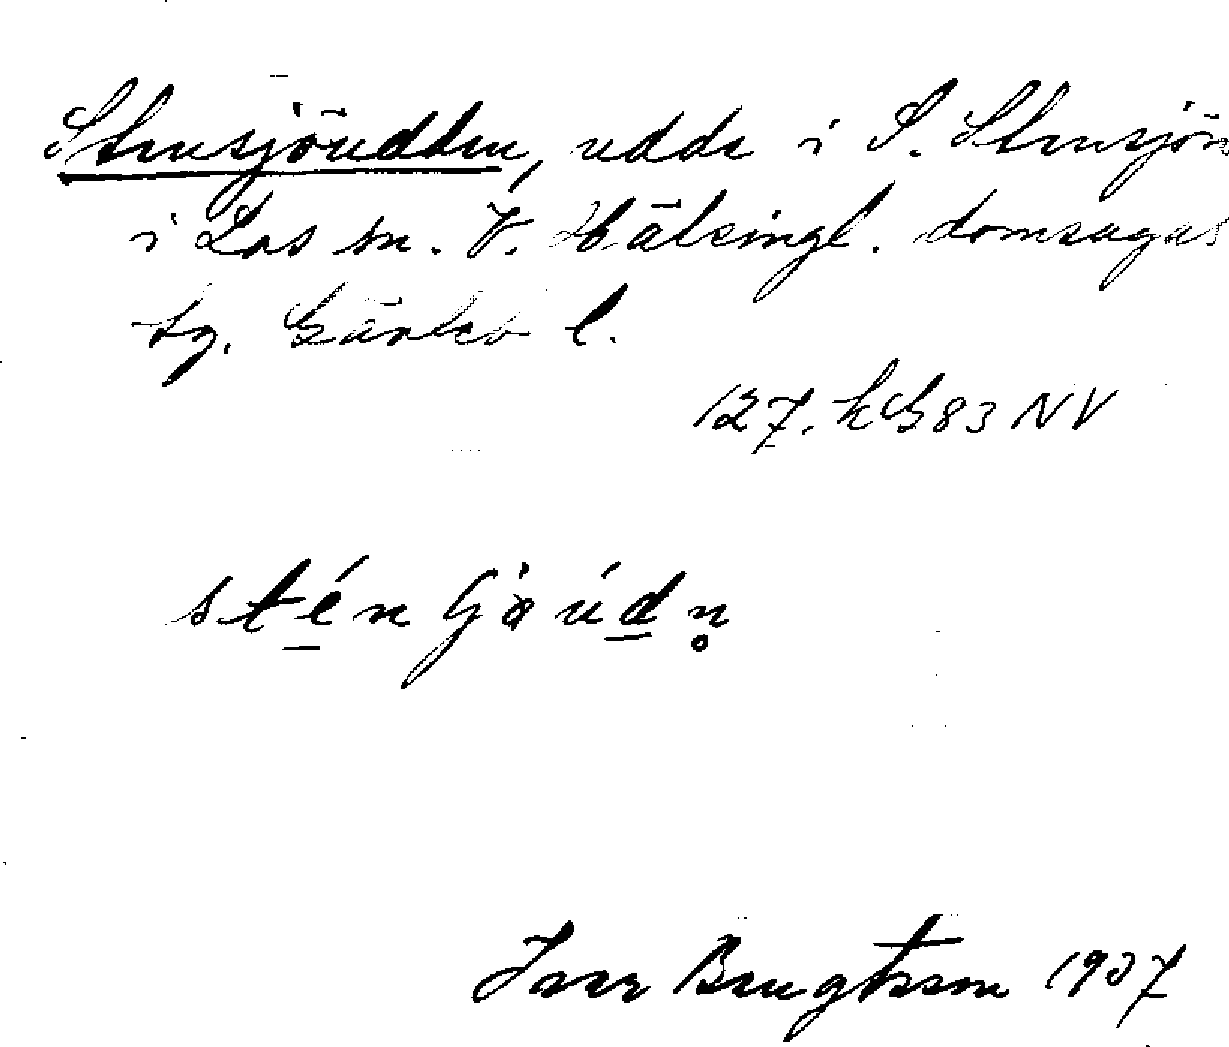 Stensjöudden, udde i S. Stensjön
i Los sn. V. Hälsingl. domsagas
tg. Gävleb l.
127. k G 83 NV
stén Gö údn̥
Ivar Bengtsson 1937